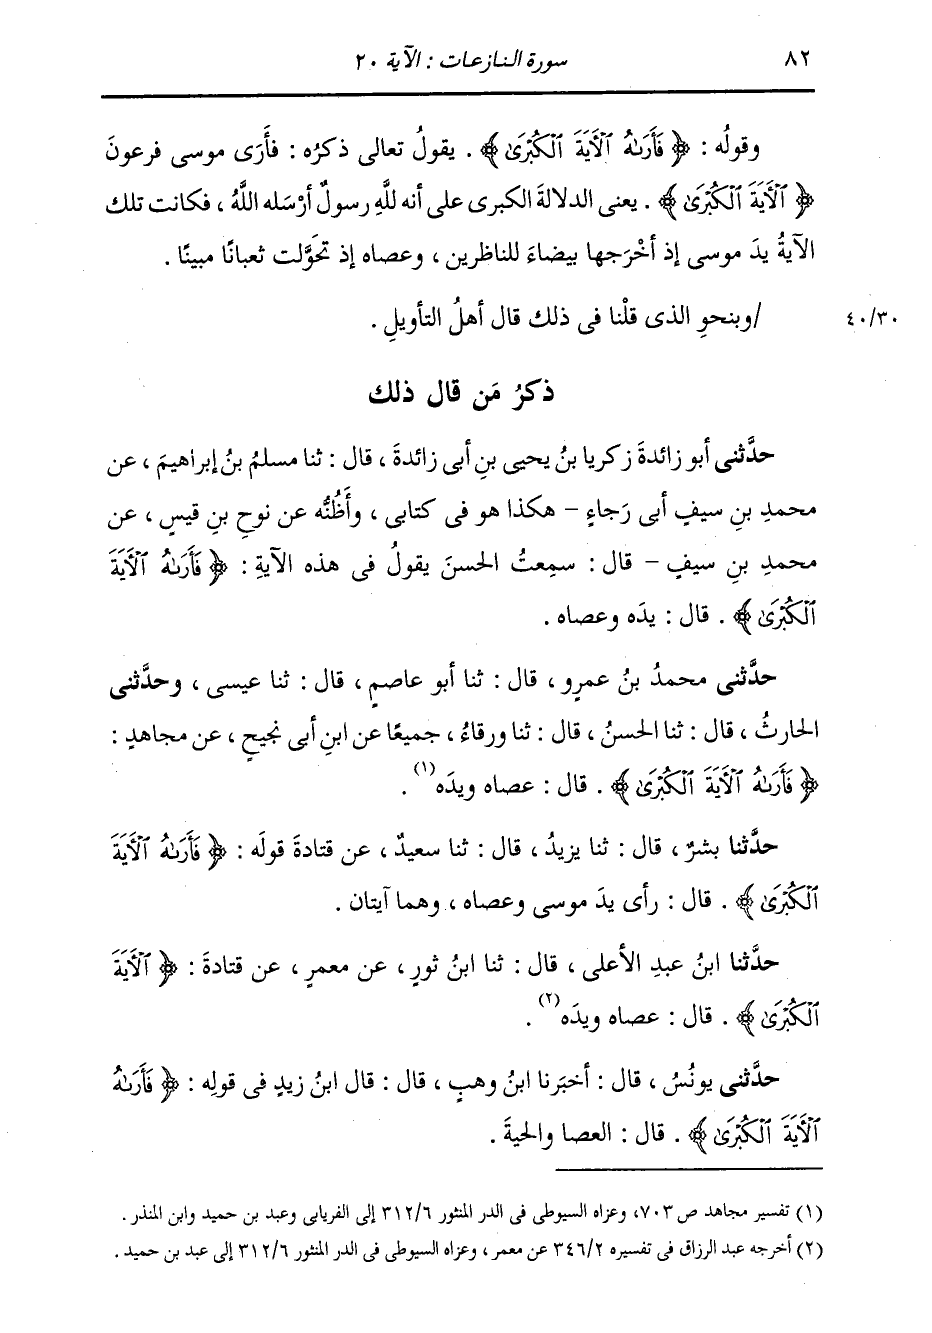 ٨٢ سورة النازعات : الآية ٢٠
وقولُه : ﴿ فَأَرَىٰهُ ٱلْأٓيَةَ ٱلْكُبْرَىٰ ﴾ . يقولُ تعالى ذكرُه : فأَرَى موسى فرعونَ
﴿ ٱلْأٓيَةَ ٱلْكُبْرَىٰ ﴾ . يعنى الدلالةَ الكبرى على أنه للَّهِ رسولٌ أرْسَله اللَّهُ ، فكانت تلك
الآيةُ يدَ موسى إذ أخْرَجها بيضاءَ للناظرين ، وعصاه إذ تحَوَّلت ثعبانًا مبينًا .
٤٠/٣٠ /وبنحوِ الذى قلْنا فى ذلك قال أهلُ التأويلِ .
ذكرُ مَن قال ذلك
حدَّثنى أبو زائدةَ زكريا بنُ يحيى بنِ أبى زائدةَ ، قال : ثنا مسلمُ بنُ إبراهيمَ ، عن
محمدِ بنِ سيفٍ أبى رَجاءٍ – هكذا هو فى كتابى ، وأَظُنُّه عن نوحِ بنِ قيسٍ ، عن
محمدِ بنِ سيفٍ – قال : سمِعتُ الحسنَ يقولُ فى هذه الآيةِ : ﴿ فَأَرَىٰهُ ٱلْأٓيَةَ
ٱلْكُبْرَىٰ ﴾ . قال : يدَه وعصاه .
حدَّثنى محمدُ بنُ عمرٍو ، قال : ثنا أبو عاصمٍ ، قال : ثنا عيسى ، وحدَّثنى
الحارثُ ، قال : ثنا الحسنُ ، قال : ثنا ورقاءُ ، جميعًا عن ابنِ أبى نجيحٍ ، عن مجاهدٍ :
﴿ فَأَرَىٰهُ ٱلْأٓيَةَ ٱلْكُبْرَىٰ ﴾ . قال : عصاه ويدَه(١) .
حدَّثنا بشرٌ ، قال : ثنا يزيدُ ، قال : ثنا سعيدٌ ، عن قتادةَ قولَه : ﴿ فَأَرَىٰهُ ٱلْأٓيَةَ
ٱلْكُبْرَىٰ ﴾ . قال : رأى يدَ موسى وعصاه ، وهما آيتان .
حدَّثنا ابنُ عبدِ الأعلى ، قال : ثنا ابنُ ثورٍ ، عن معمرٍ ، عن قتادةَ : ﴿ ٱلْأٓيَةَ
ٱلْكُبْرَىٰ ﴾ . قال : عصاه ويدَه(٢) .
حدَّثنى يونُسُ ، قال : أخبَرنا ابنُ وهبٍ ، قال : قال ابنُ زيدٍ فى قولِه : ﴿ فَأَرَىٰهُ
ٱلْأٓيَةَ ٱلْكُبْرَىٰ ﴾ . قال : العصا والحيةَ .
(١) تفسير مجاهد ص ٧٠٣، وعزاه السيوطى فى الدر المنثور ٣١٢/٦ إلى الفريابى وعبد بن حميد وابن المنذر .
(٢) أخرجه عبد الرزاق فى تفسيره ٣٤٦/٢ عن معمر ، وعزاه السيوطى فى الدر المنثور ٣١٢/٦ إلى عبد بن حميد .